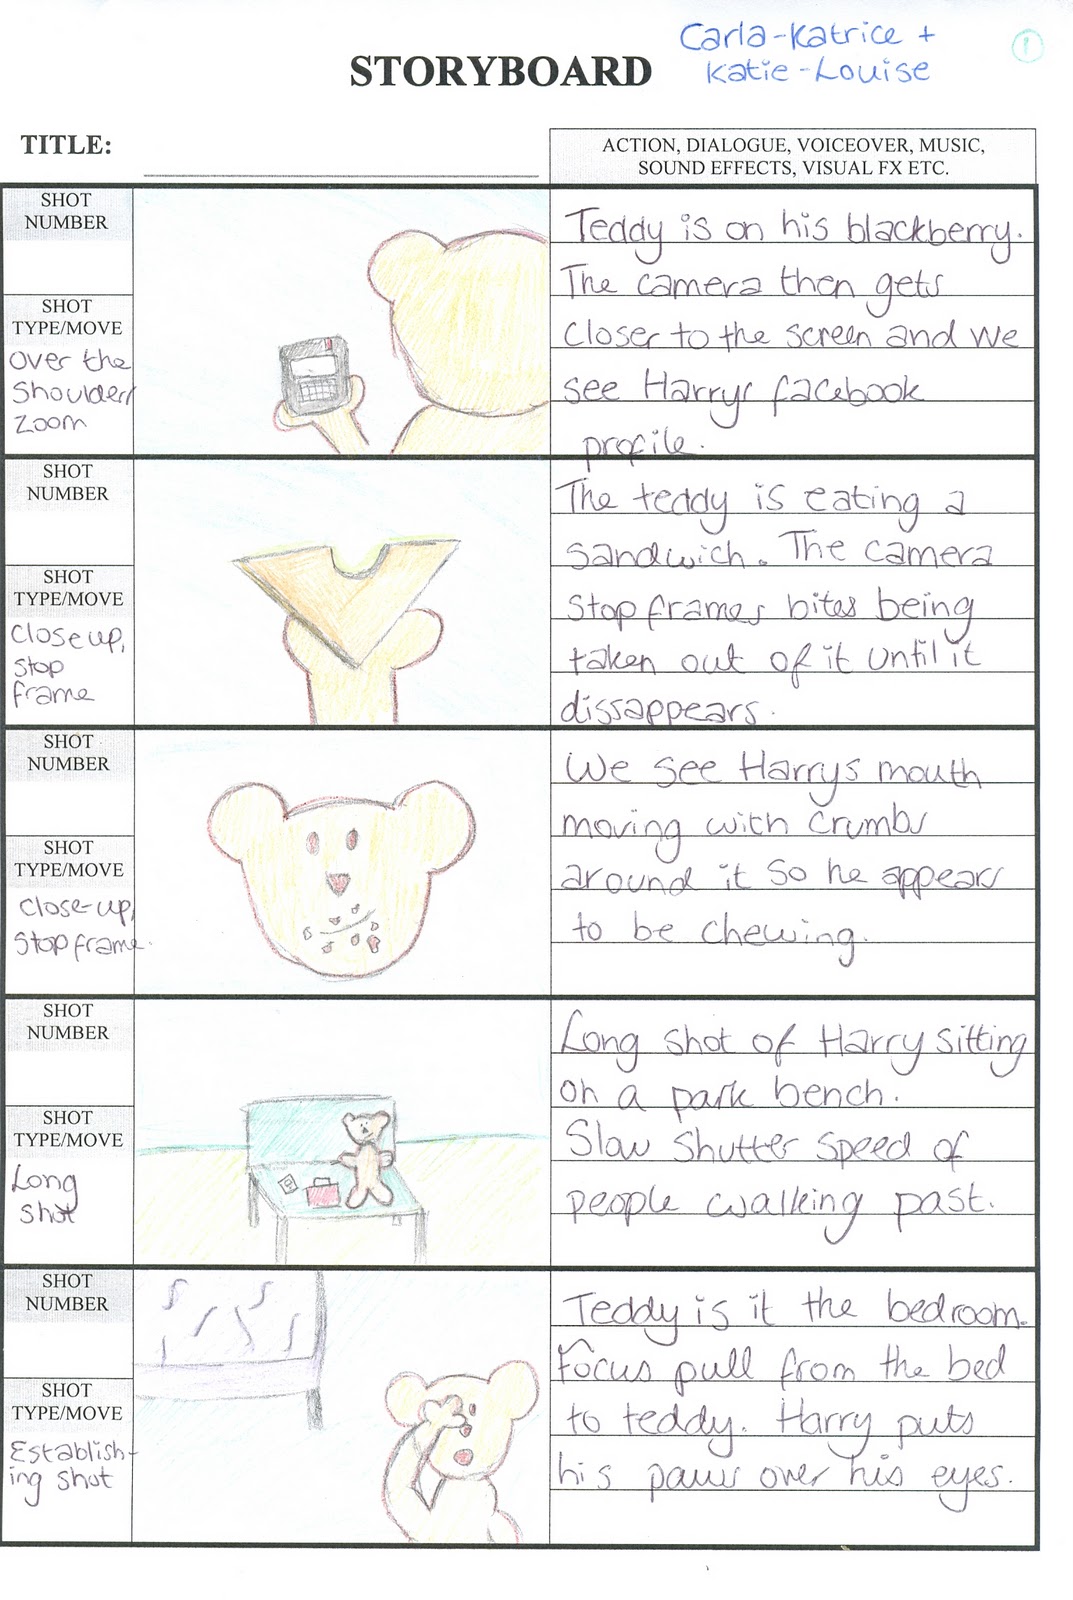 Carla-Katrice +
Katie-Louise
1
STORYBOARD
TITLE:
ACTION, DIALOGUE, VOICEOVER, MUSIC,
SOUND EFFECTS, VISUAL FX ETC.
SHOT
NUMBER
SHOT
TYPE/MOVE
over the
shoulder/
zoom
Teddy is on his blackberry.
The camera then gets
closer to the screen and we
see Harrys facebook
profile.
SHOT
NUMBER
SHOT
TYPE/MOVE
close up,
stop
frame
The teddy is eating a
sandwich. The camera
stop frames bites being
taken out of it until it
dissappears.
SHOT
NUMBER
SHOT
TYPE/MOVE
close-up,
stop frame.
We see Harrys mouth
moving with crumbs
around it so he appears
to be chewing.
SHOT
NUMBER
SHOT
TYPE/MOVE
Long
shot
Long shot of Harry sitting
on a park bench.
Slow shutter speed of
people walking past.
SHOT
NUMBER
SHOT
TYPE/MOVE
Establish-
ing shot
Teddy is it the bedroom.
Focus pull from the bed
to teddy. Harry puts
his paws over his eyes.